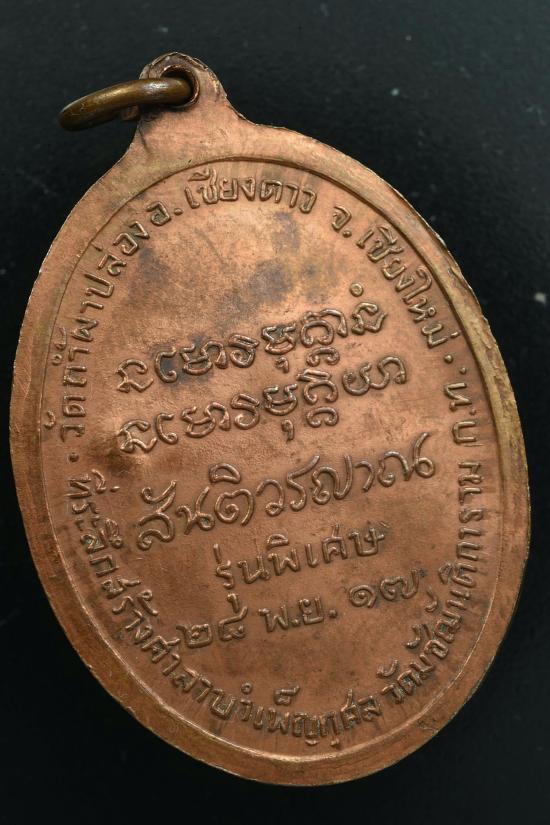 วัดถ้ำผาปล่อง อ. เชียงดาว จ. เชียงใหม่
สันติวรญาณ
รุ่นพิเศษ
๒๘ พ.ย. ๑๗
ที่ระลึกสร้างศาลาบำเพ็ญกุศล วัดมัชฌันติการาม ก.ท.